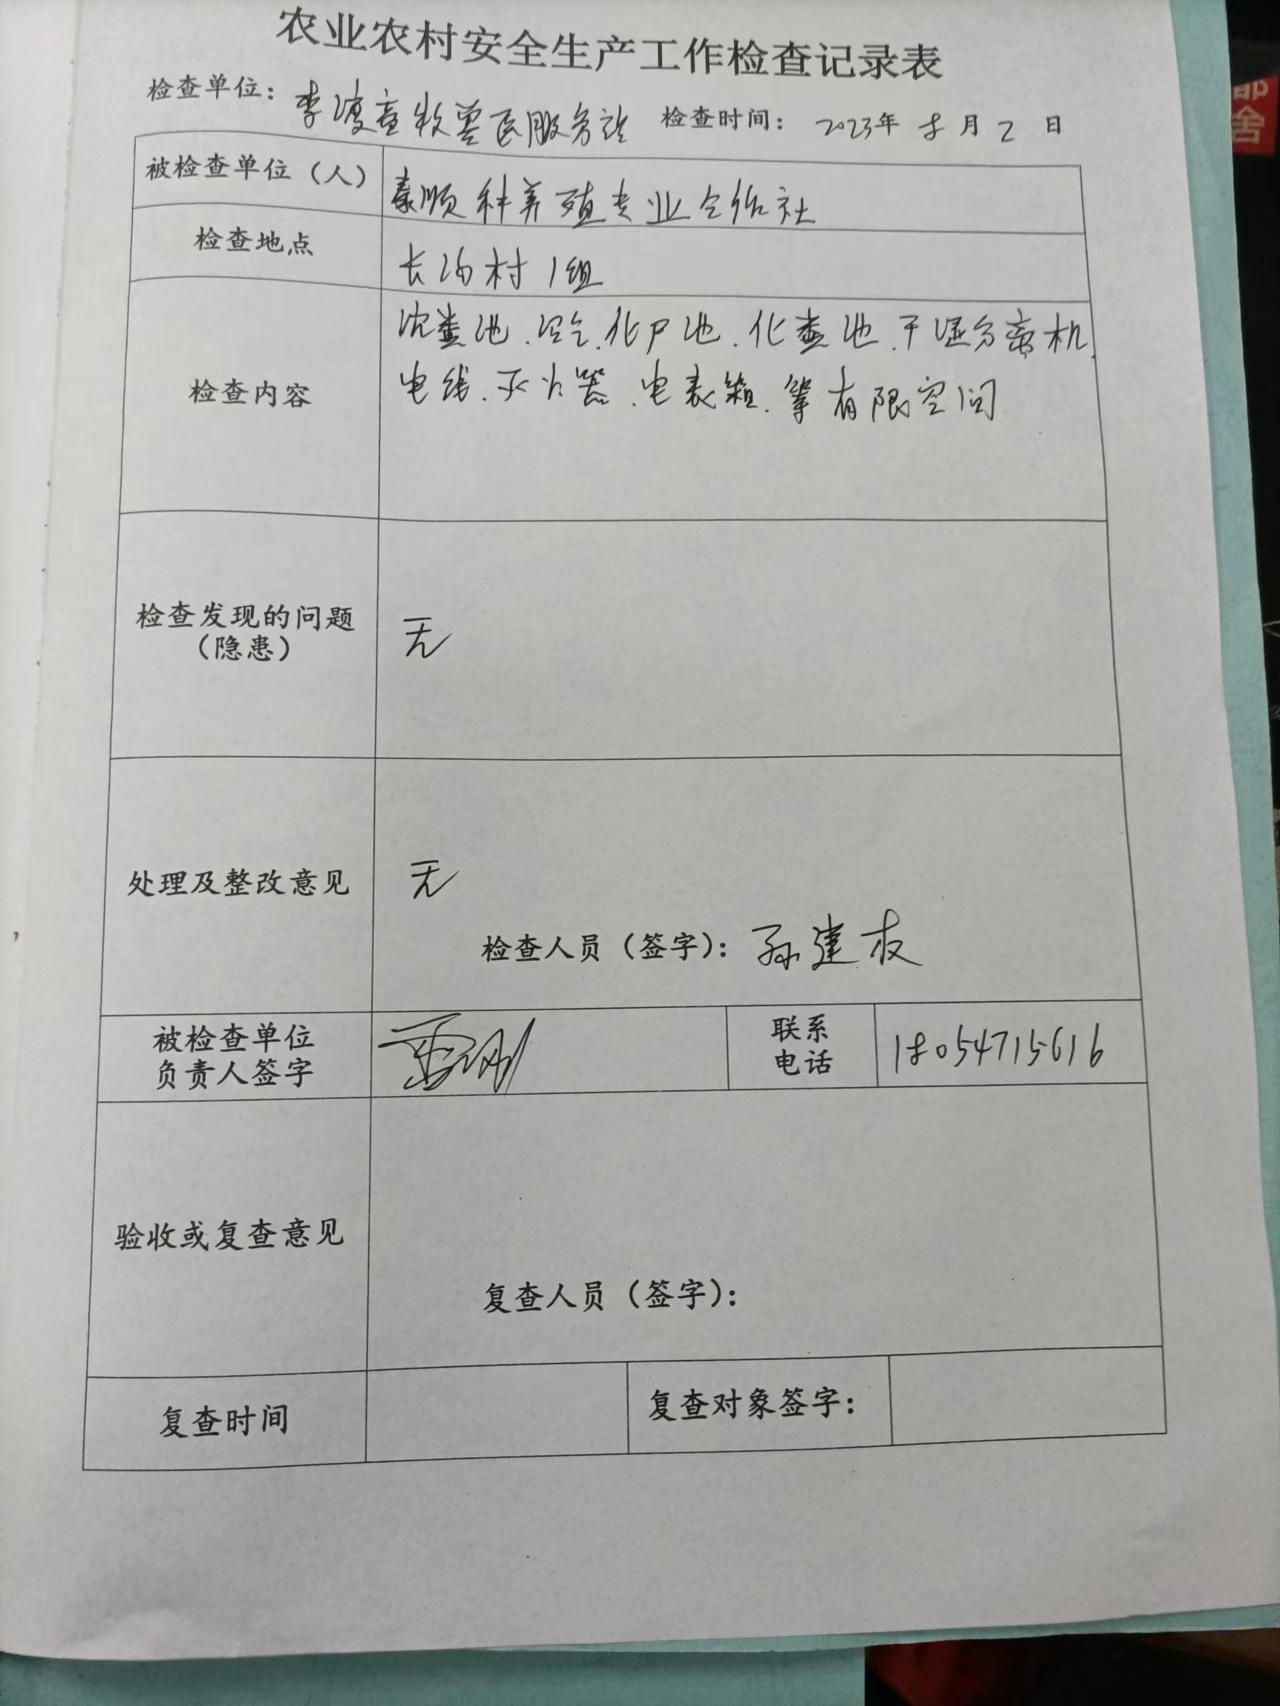 农业农村安全生产工作检查记录表
检查单位：李渡畜牧兽医服务站 检查时间：2023年8月2日
被检查单位（人） 泰顺种养殖专业合作社
检查地点 长沟村1组
检查内容 沉渣池、沼气、化尸池、化粪池、干湿分离机、
电线、灭火器、电表箱、等有限空间
检查发现的问题
（隐患）
无
处理及整改意见 无
检查人员（签字）：孙建权
被检查单位
负责人签字
联系
电话
18054715616
验收或复查意见
复查人员（签字）：
复查时间 复查对象签字：
都
舍